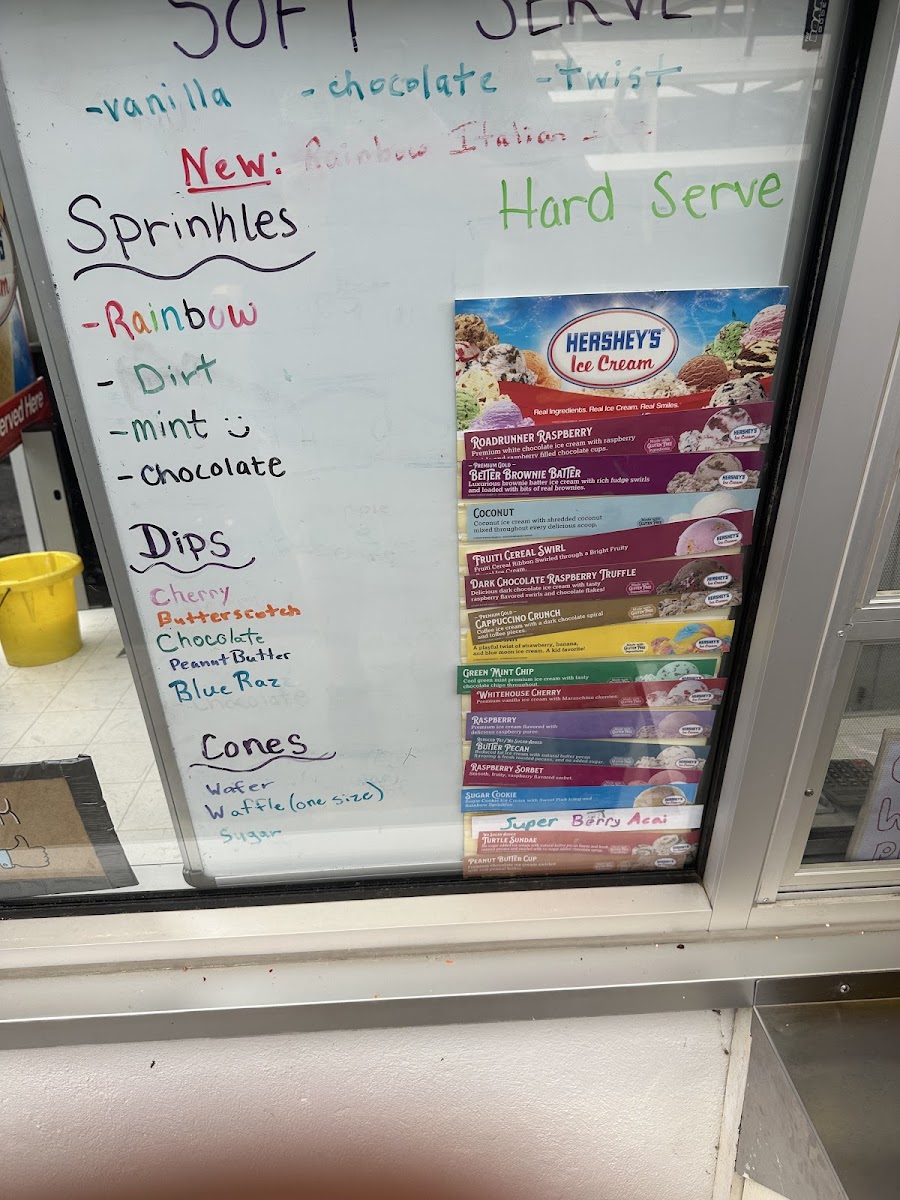 SOFT SERVE
-vanilla - chocolate - twist
New: Rainbow Italian
Sprinkles
- Rainbow
- Dirt
- mint
- chocolate
Dips
Cherry
Butterscotch
Chocolate
Peanut Butter
Blue Raz
Cones
Wafer
Waffle (one size)
Sugar
Hard Serve
HERSHEY'S
Ice Cream
Real Ingredients. Real Ice Cream. Real Smiles.
ROADRUNNER RASPBERRY
Premium white chocolate ice cream with raspberry
and raspberry filled chocolate cups.
PREMIUM GOLD
BETTER BROWNIE BATTER
Luxurious brownie batter ice cream with rich fudge swirls
and loaded with bits of real brownies.
COCONUT
Coconut ice cream with shredded coconut
mixed throughout every delicious scoop.
FRUITI CEREAL SWIRL
Fruiti Cereal Ribbon Swirled through a Bright Fruity
DARK CHOCOLATE RASPBERRY TRUFFLE
Delicious dark chocolate ice cream with tasty
raspberry flavored swirls and chocolate flakes!
PREMIUM GOLD
CAPPUCCINO CRUNCH
Coffee ice cream with a dark chocolate spiral
and toffee pieces.
A playful twist of strawberry, banana,
and blue moon ice cream. A kid favorite!
GREEN MINT CHIP
Cool green mint premium ice cream with tasty
chocolate chips throughout.
WHITEHOUSE CHERRY
Premium vanilla ice cream with Maraschino cherries.
RASPBERRY
Premium ice cream flavored with
delicious raspberry puree.
REDUCED FAT/NO SUGAR ADDED
BUTTER PECAN
Reduced fat ice cream with natural butter pecan
flavoring & fresh roasted pecans, and no added sugar.
RASPBERRY SORBET
Smooth, fruity, raspberry flavored sorbet.
SUGAR COOKIE
Super Berry Acai
NO SUGAR ADDED
TURTLE SUNDAE
PEANUT BUTTER CUP
erved Here